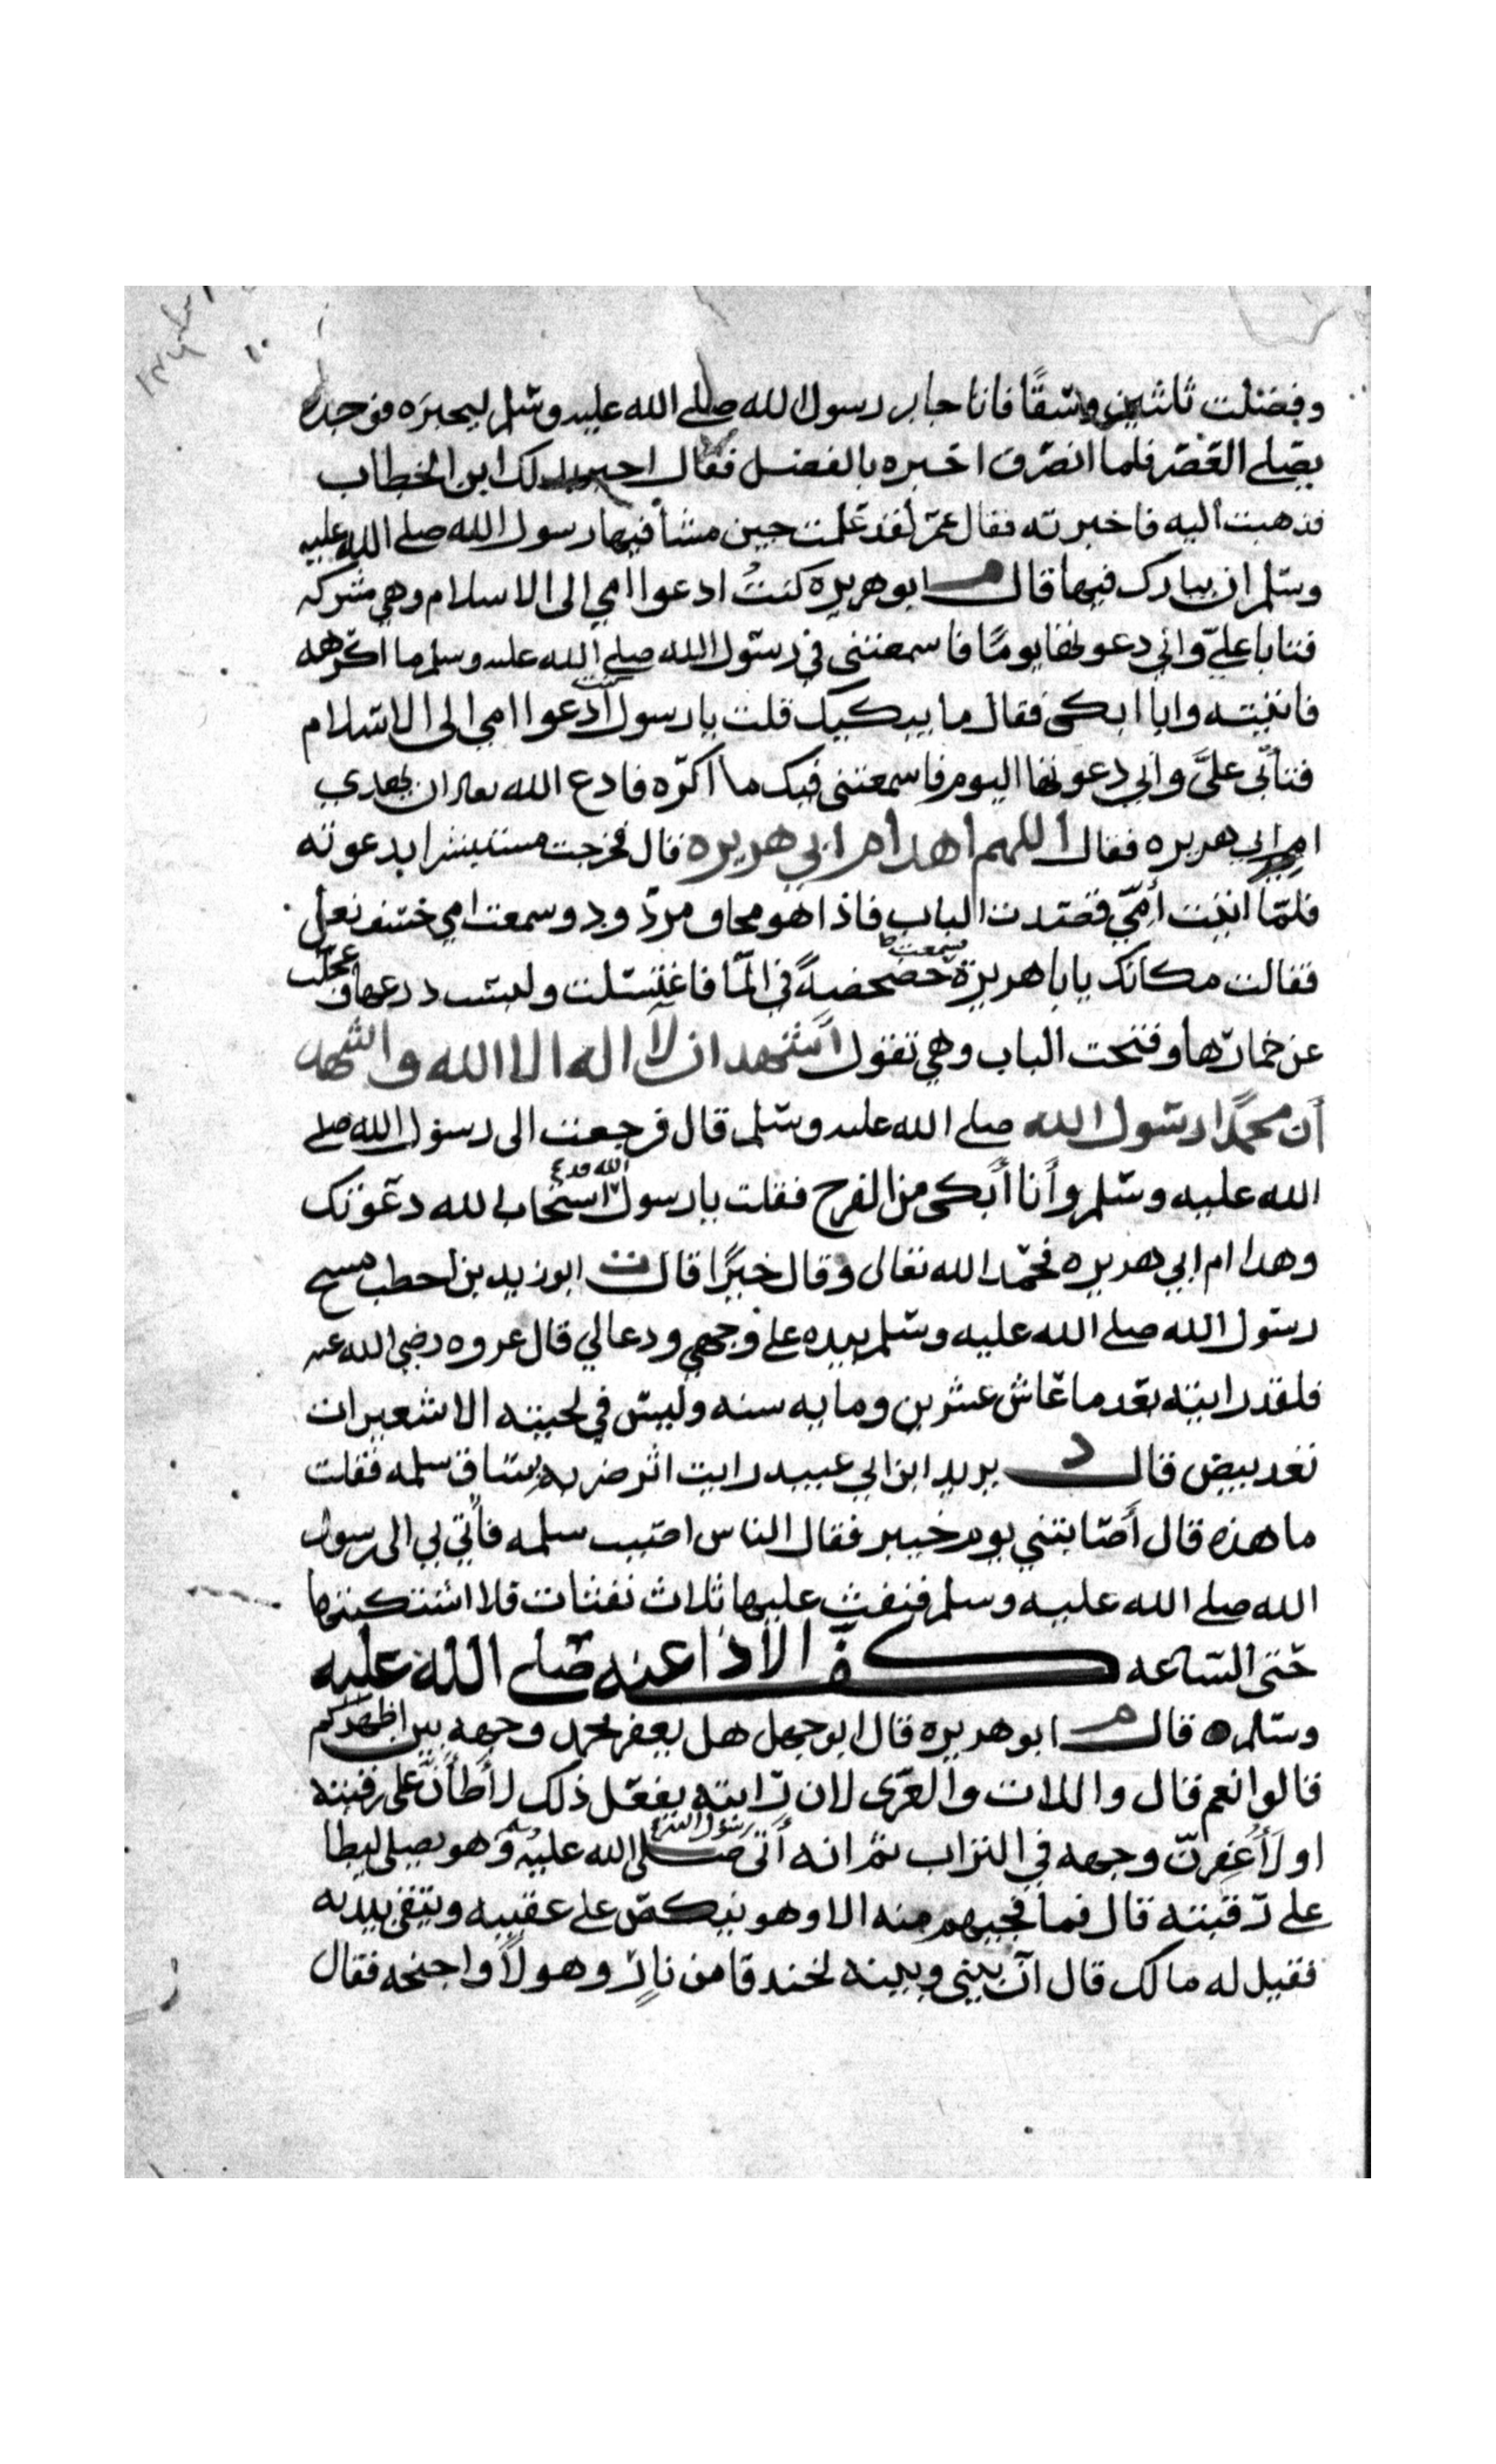 وفضلت ثلثين وسقًا فاتا جابر رسول الله صلى الله عليه وسلم ليخبره فوجده
يصلي العصر فلما انصرف اخبره بالفضل فقال اخبر ذلك ابن الخطاب
فذهبت اليه فاخبرته فقال عمر لقد علمت حين مشا فيها رسول الله صلى الله عليه
وسلم ان يبارك فيها قال م ابو هريره كنتُ ادعوا امي الى الاسلام وهي مشركه
فتابا عليّ واني دعوتها يومًا فاسمعتني في رسول الله صلى الله عليه وسلم ما اكره
فاتيته وانا ابكى فقال ما يبكيك قلت يا رسول كنت ادعوا امي الى الاسلام
فتأبى عليَّ واني دعوتها اليوم فاسمعتني فيك ما اكره فادع الله تعالى ان يهدي
ام ابي هريره فقال اللهم اهد ام ابي هريره قال فخرجت مستبشرا بدعوته
فلمّا اتيت أمّي قصدت الباب فاذا هو مجاف مردود وسمعت امي خشف نعل
فقالت مكانك يابا هريرة سمعت خضخضةً في المّا فاغتسلت ولبست درعها وعجلت
عن خمارها وفتحت الباب وهي تقول أشهد ان لا اله الا الله واشهد
أن محمدًا رسول الله صلى الله عليه وسلم قال فرجعت الى رسول الله صلى
الله عليه وسلم وأنا أبكى من الفرح فقلت يا رسول الله قد استجاب الله دعوتك
وهدا ام ابي هريره فحمد الله تعالى وقال خيرًا قال ت ابو زيد بن احطب مسح
رسول الله صلى الله عليه وسلم بيده على وجهي ودعا لي قال عروه رضي الله عنه
فلقد رايته بعد ما عاش عشرين ومايه سنه وليس في لحيته الا شعيرات
تعد بيض قال د يزيد ابن ابي عبيد رايت اثر ضربه بساق سلمه فقلت
ما هذه قال أصابتني يوم خيبر فقال الناس اصيب سلمه فأتي بي الى رسول
الله صلى الله عليه وسلم فنفث عليها ثلاث نفثات فلا اشتكيتها
حتى الساعه كف الاذا عنه صلى الله عليه
وسلم ه قال م ابو هريره قال ابو جهل هل يعفر محمد وجهه بين اظهركم
قالوا نعم قال واللات والعزى لان رايته يفعل ذلك لأطأنّ على رقبته
او لأعفرنّ وجهه في التراب ثم انه أتى رسول الله صلى الله عليه وسلم وهو يصلي ليطا
على رقبته قال فما فجيهم منه الا وهو ينكص على عقبيه ويتقي بيديه
فقيل له مالك قال انّ بيني وبينه لخندقا من نارٍ وهولاً واجنحه فقال